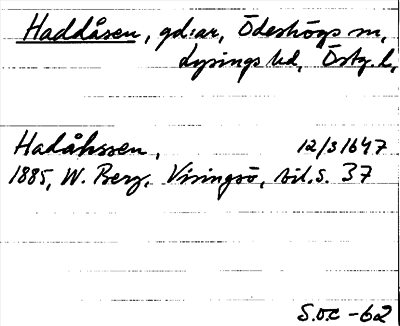 Haddåsen, gd:ar, Ödeshögs sn,
Lysings hd, Östg. l,
Hadåhssen, 12/3 1647
1885, W. Berg, Visingsö, bil. s. 37
S.o.c -62